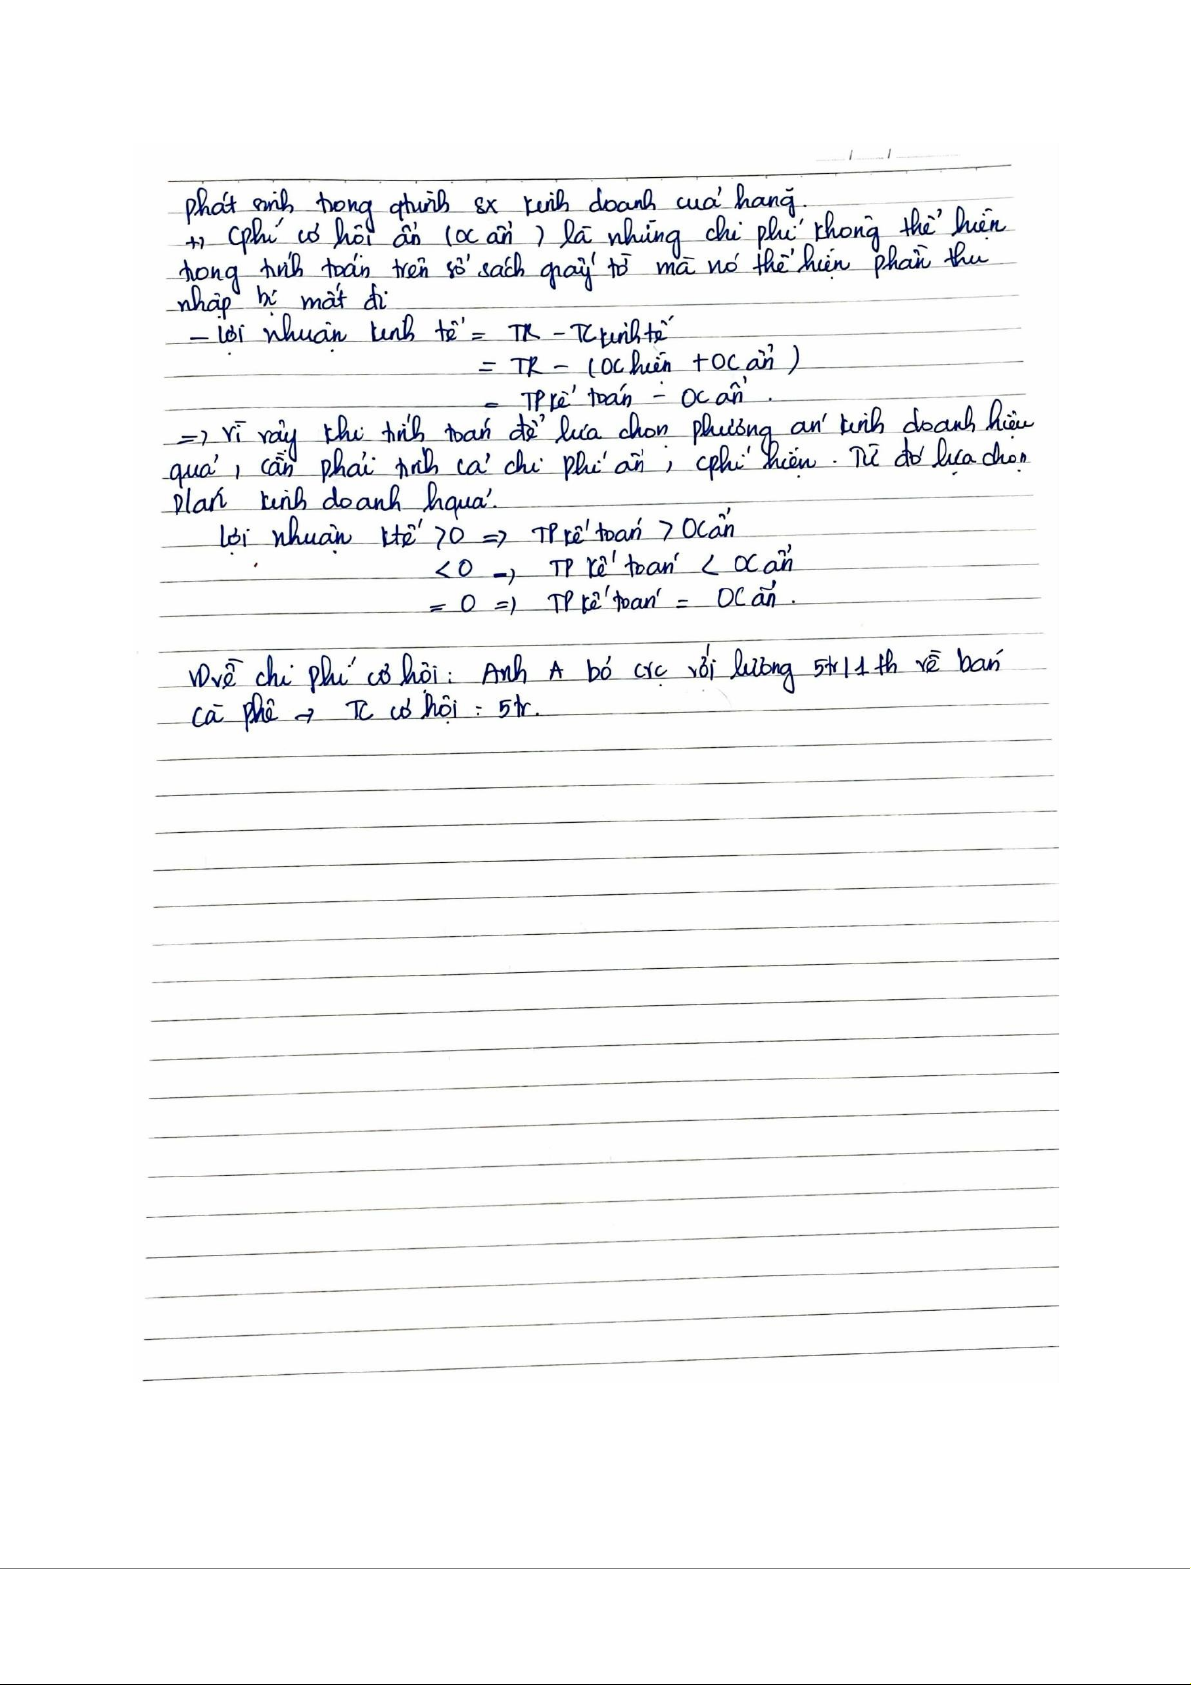 phát sinh trong qtrình sx kinh doanh của hãng.
+) Cphí cơ hội ẩn (OC ẩn) là những chi phí không thể hiện
trong tính toán trên sổ sách giấy tờ mà nó thể hiện phần thu
nhập bị mất đi
- Lợi nhuận kinh tế = TR - TC kinh tế
= TR - (OC hiện + OC ẩn)
= TP kế toán - OC ẩn.
=> Vì vậy khi tính toán để lựa chọn phương án kinh doanh hiệu
quả, cần phải tính cả chi phí ẩn, cphí hiện. Từ đó lựa chọn
plan kinh doanh hquả.
Lợi nhuận ktế >0 => TP kế toán > OC ẩn
<0 => TP kế toán < OC ẩn
= 0 => TP kế toán = OC ẩn.
VD về chi phí cơ hội: Anh A bỏ cvc với lương 5tr/1 th về bán
cà phê → TC cơ hội = 5tr.